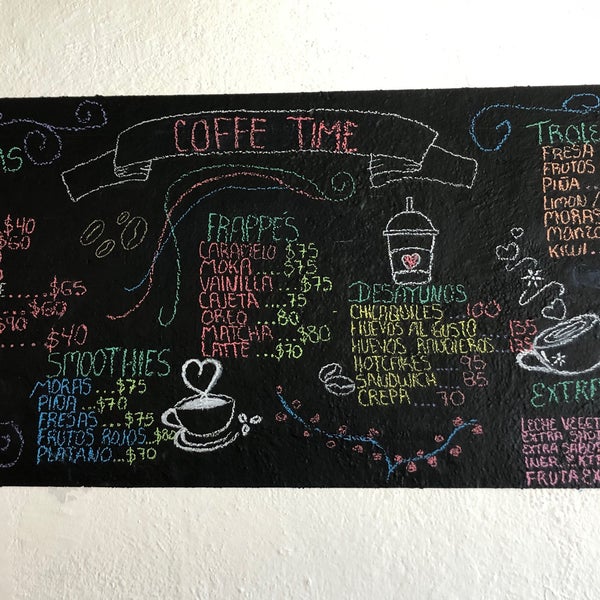 COFFE TIME
AS
$40
$60
$65
$60
$40
FRAPPÉS
CARAMELO $75
MOKA....$75
VAINILLA ...$75
CAJETA ....75
OREO....80
MATCHA....$80
LATTE ...$70
SMOOTHIES
MORAS...$75
PIÑA ...$70
FRESAS ...$75
FRUTOS ROJOS..$80
PLATANO...$70
DESAYUNOS
CHILAQUILES ...100
HUEVOS AL GUSTO
HUEVOS RANCHEROS...135
HOTCAKES ....95
SANDWICH ....85
CREPA ....70
TROLE
FRESA
FRUTOS
PIÑA ..
LIMON /
MORAS
MANZA
KIWI ...
EXTRA
LECHE VEGET
EXTRA SHOT
EXTRA SABO
INGR. EXT
FRUTA EX